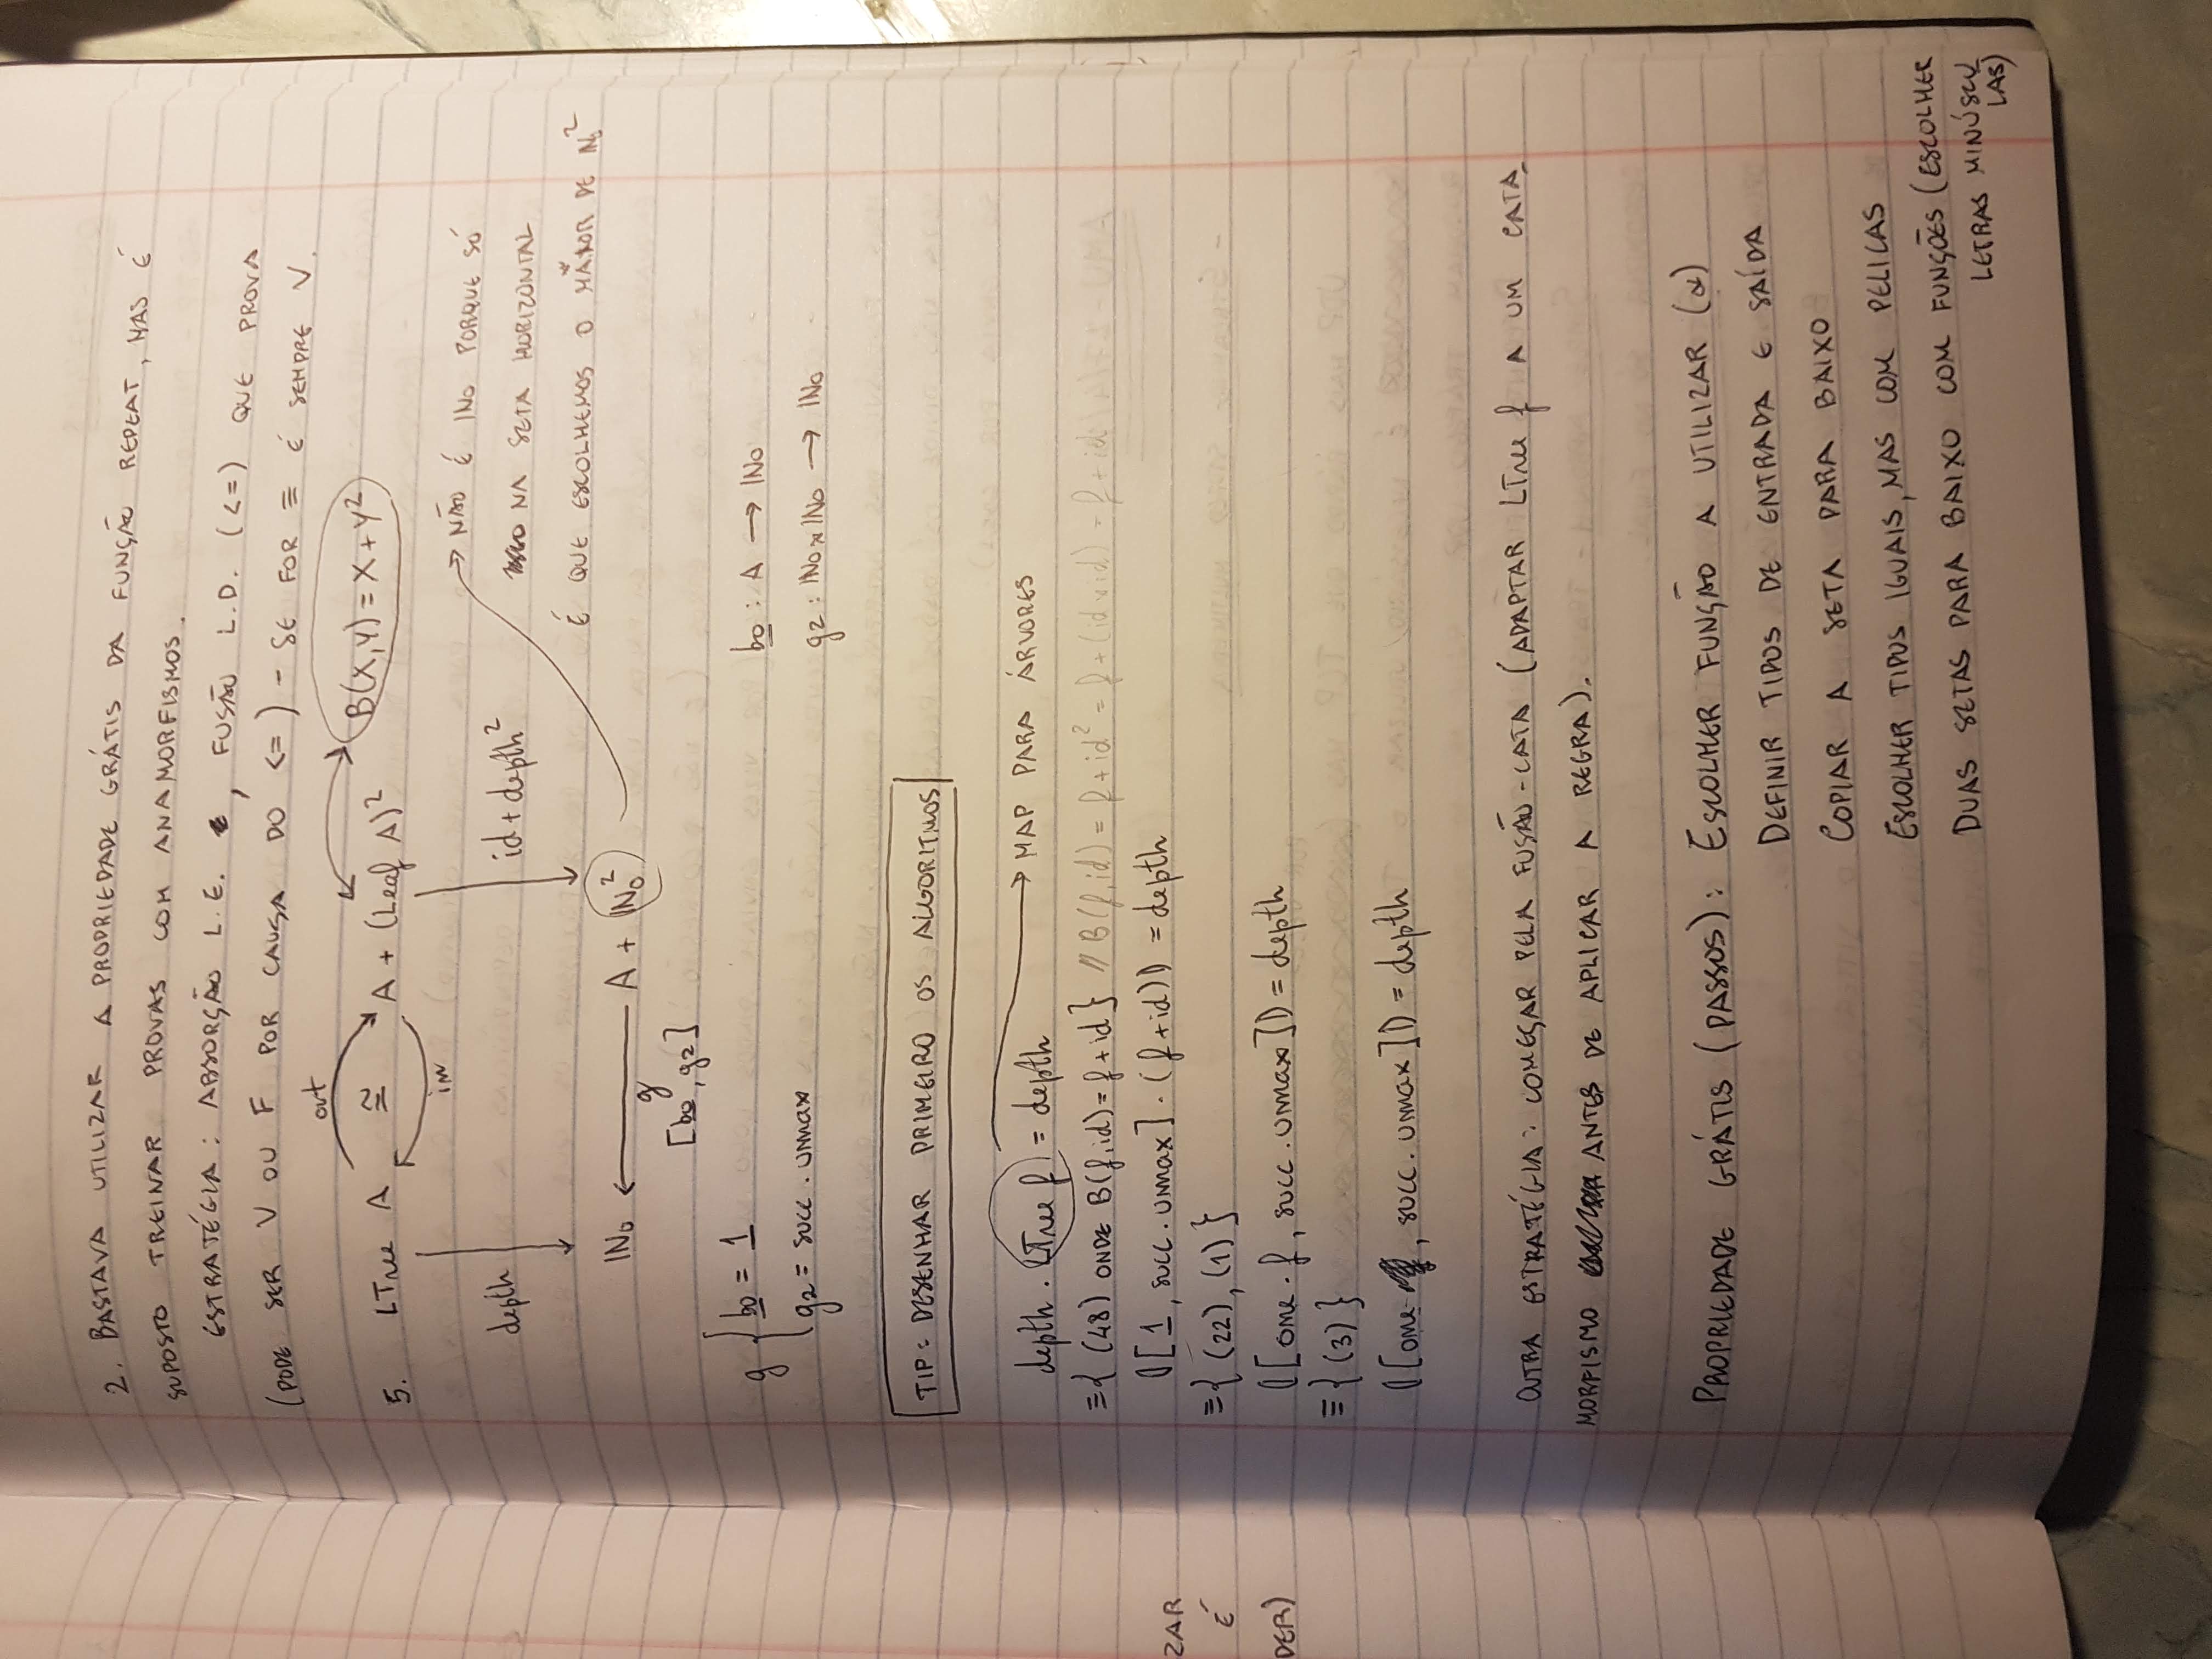 2. BASTAVA UTILIZAR A PROPRIEDADE GRÁTIS DA FUNÇÃO REPEAT, MAS É
SUPOSTO TREINAR PROVAS COM ANAMORFISMOS.
ESTRATÉGIA: ABSORÇÃO L.E. , FUSÃO L.D. (<=) QUE PROVA
(PODE SER V OU F POR CAUSA DO <=) - SE FOR ≡ É SEMPRE V.
out
B(X,Y) = X + Y²
5. LTree A ≅ A + (Leaf A)²
in
→ NÃO É ℕ₀ PORQUE SÓ
depth id + depth² NA SETA HORIZONTAL
É QUE ESCOLHEMOS O MAIOR DE ℕ₀²
ℕ₀ ← A + ℕ₀²
g
[b₀, g₂]
g { b₀ = 1 b₀ : A → ℕ₀
g₂ = succ . umax g₂ : ℕ₀ x ℕ₀ → ℕ₀
TIP: DESENHAR PRIMEIRO OS ALGORITMOS
depth . LTree f = depth → MAP PARA ÁRVORES
≡{ (48) ONDE B(f,id) = f + id } // B(f,id) = f + id² = f + (id x id) = f + id
⦇[1, succ . umax] . (f + id)⦈ = depth
≡{ (22), (1) }
⦇[one . f, succ . umax]⦈ = depth
≡{ (3) }
⦇[one, succ . umax]⦈ = depth
OUTRA ESTRATÉGIA: COMEÇAR PELA FUSÃO-CATA (ADAPTAR LTree f A UM CATA-
MORFISMO ANTES DE APLICAR A REGRA).
PROPRIEDADE GRÁTIS (PASSOS): ESCOLHER FUNÇÃO A UTILIZAR (α)
DEFINIR TIPOS DE ENTRADA E SAÍDA
COPIAR A SETA PARA BAIXO
ESCOLHER TIPOS IGUAIS, MAS COM PELICAS
DUAS SETAS PARA BAIXO COM FUNÇÕES (ESCOLHER
LETRAS MINÚSCU
LAS)
ZAR
É
DER)